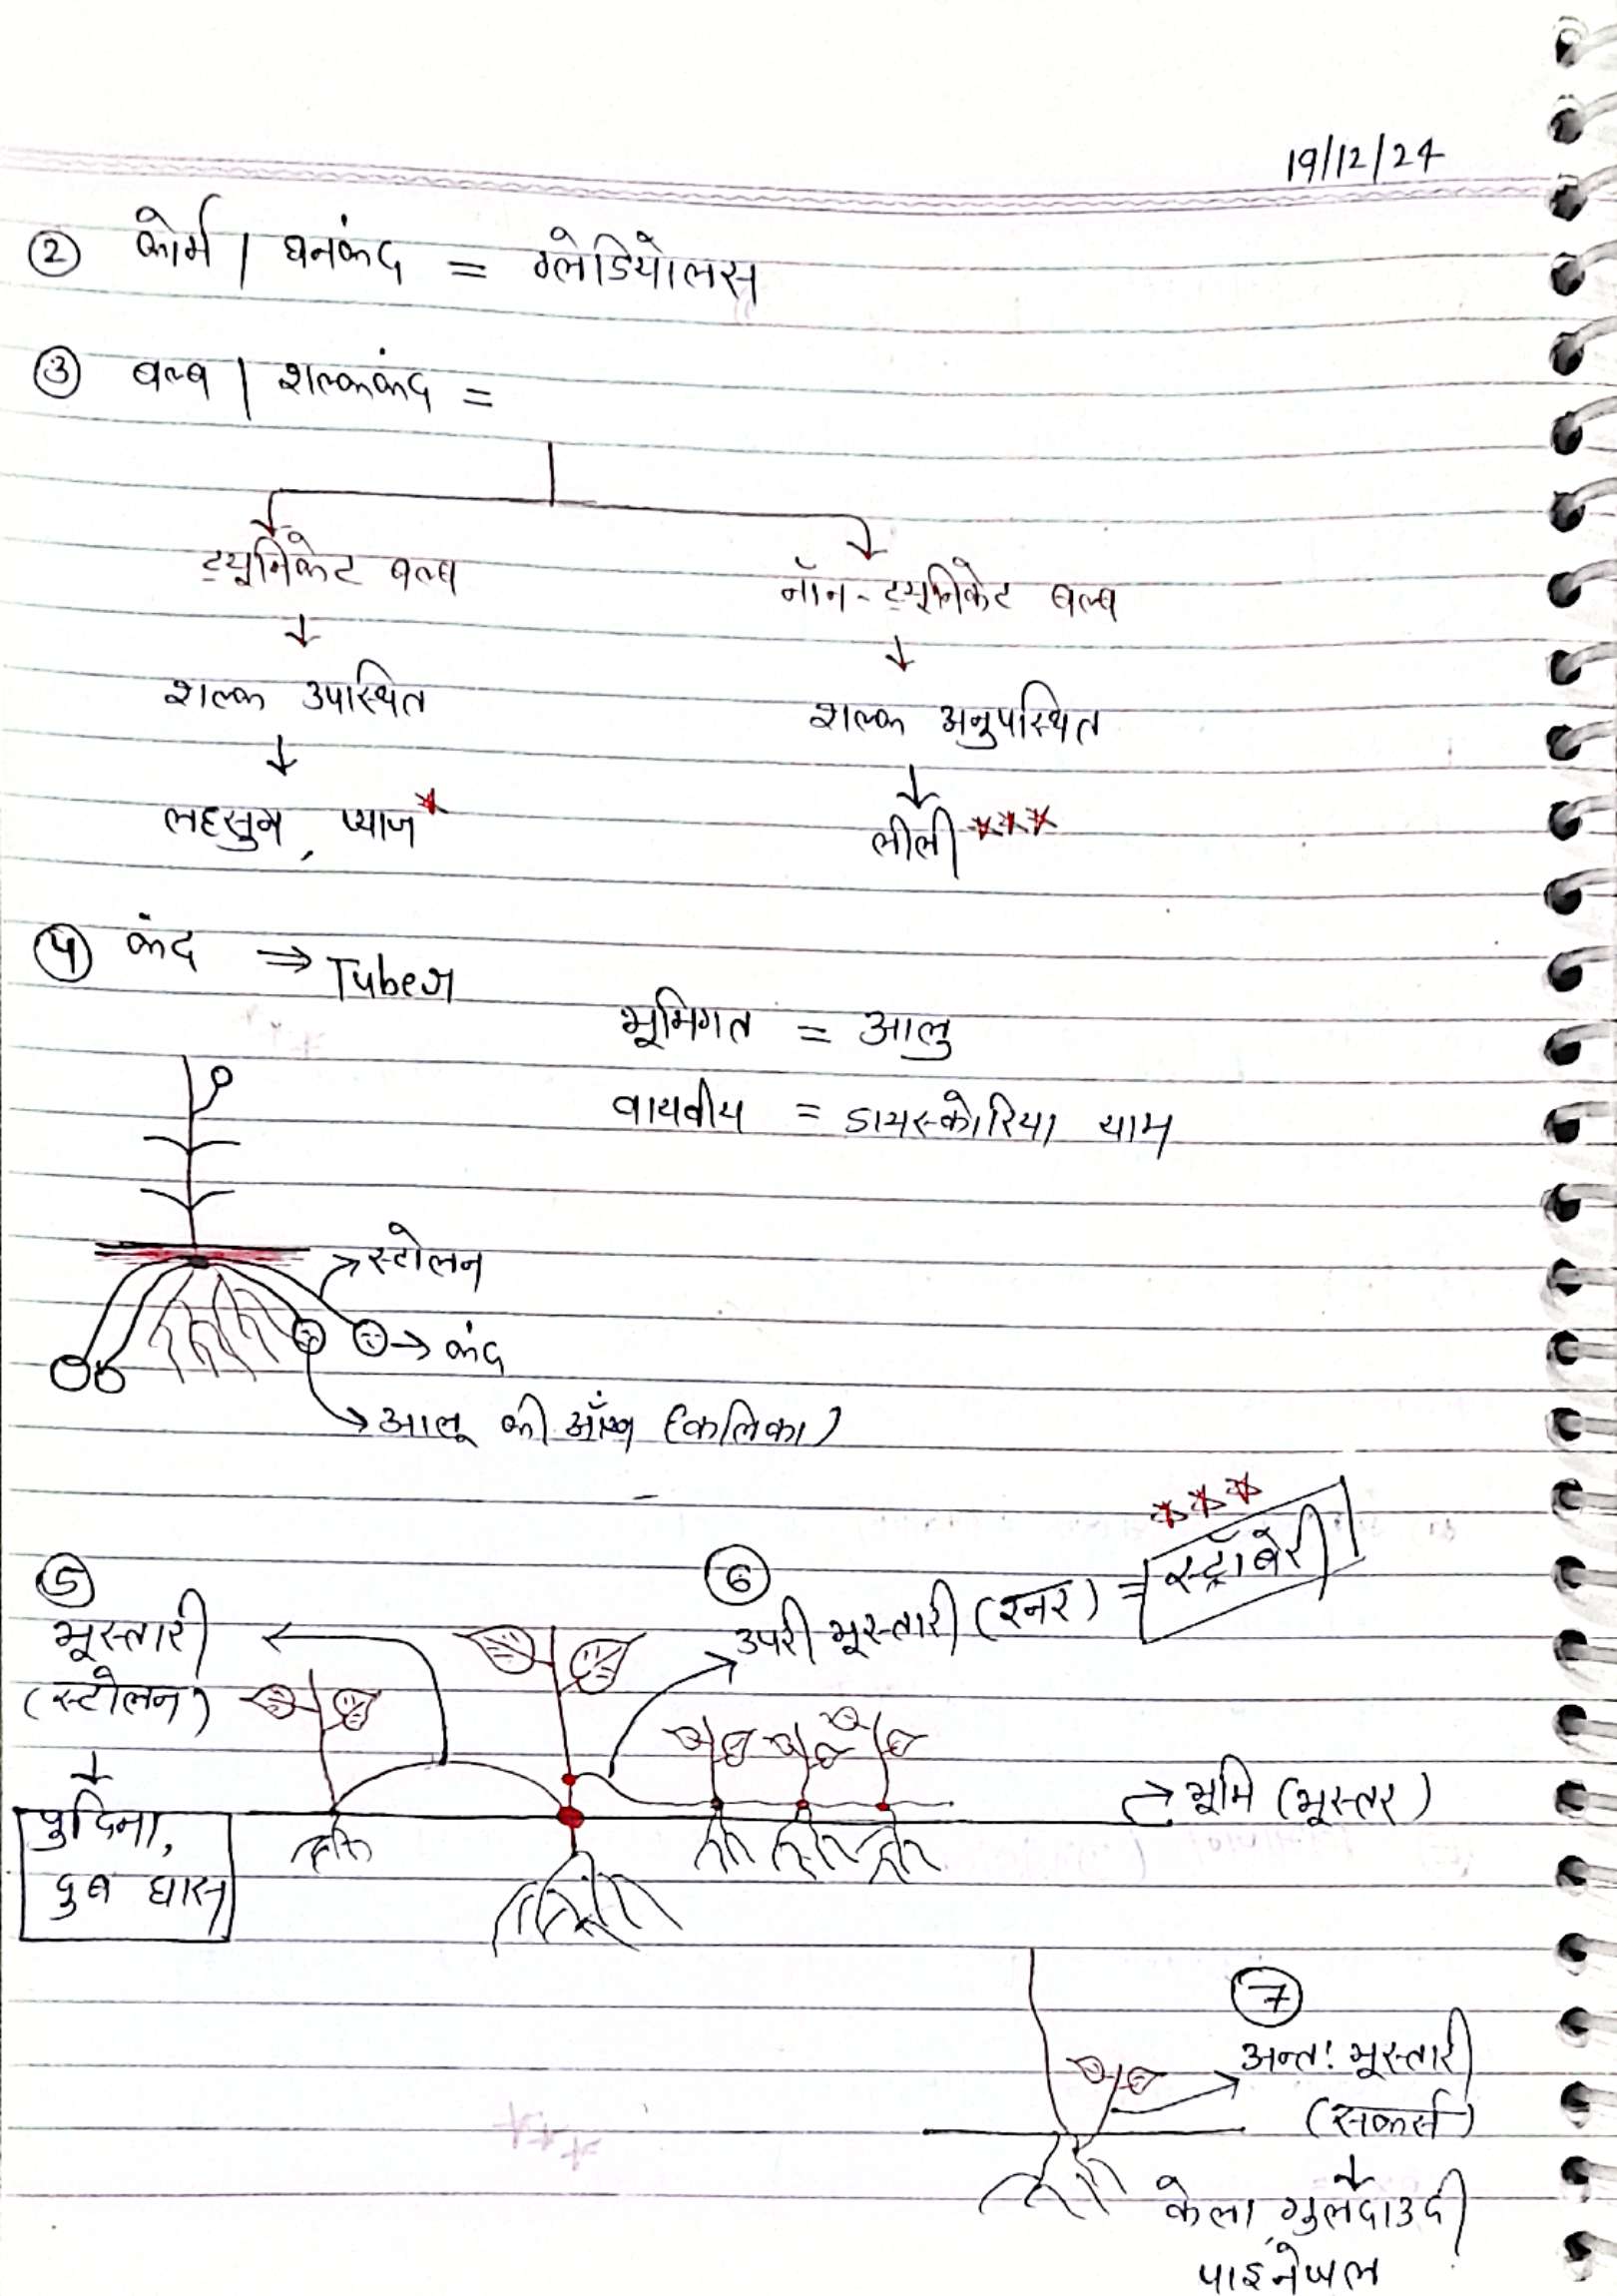 19/12/24
② कोर्म / घनकंद = ग्लेडियोलस
③ बल्ब / शल्ककंद =
ट्यूनिकेट बल्ब
नॉन-ट्यूनिकेट बल्ब
↓
↓
शल्क उपस्थित
शल्क अनुपस्थित
↓
↓
लहसुन, प्याज*
लीली ***
④ कंद ⇒ Tuber
भूमिगत = आलु
वायवीय = डायस्कोरिया याम
→ स्टोलन
→ कंद
→ आलू की आँख (कलिका)
***
⑤
⑥
उपरी भूस्तारी (रनर) = स्ट्रॉबेरी
भूस्तारी
(स्टोलन)
↓
→ भूमि (भूस्तर)
पुदिना,
दुब घास
⑦
अन्तः भूस्तारी
(सकर्स)
↓
केला, गुलदाउदी
पाइनेपल